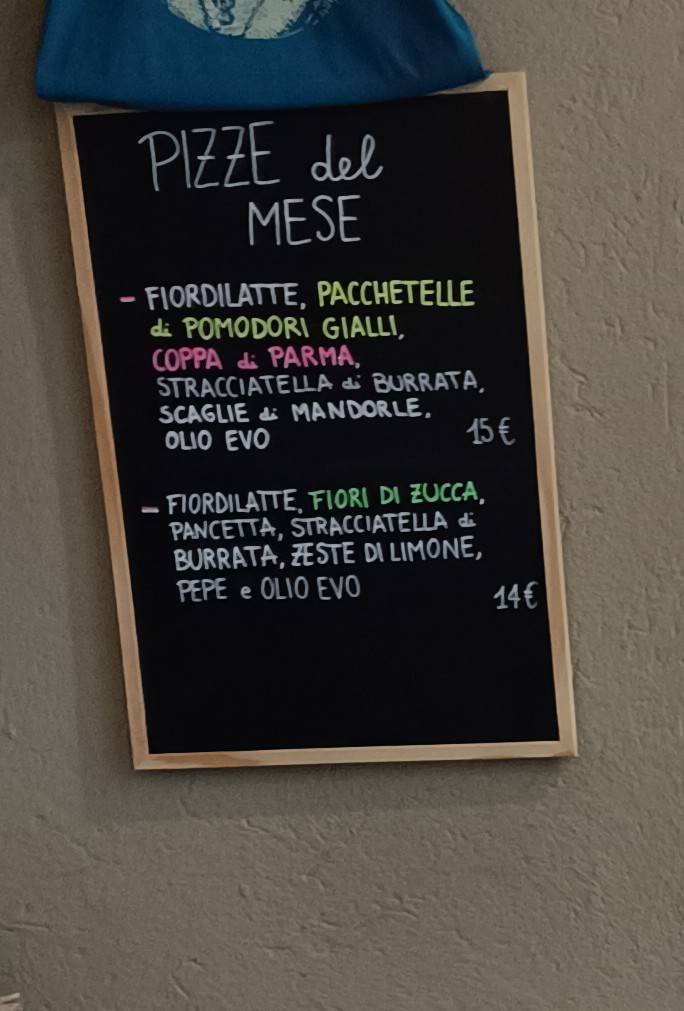 PIZZE del
MESE
- FIORDILATTE, PACCHETELLE
di POMODORI GIALLI,
COPPA di PARMA,
STRACCIATELLA di BURRATA,
SCAGLIE di MANDORLE,
OLIO EVO 15€
- FIORDILATTE, FIORI DI ZUCCA,
PANCETTA, STRACCIATELLA di
BURRATA, ZESTE DI LIMONE,
PEPE e OLIO EVO 14€